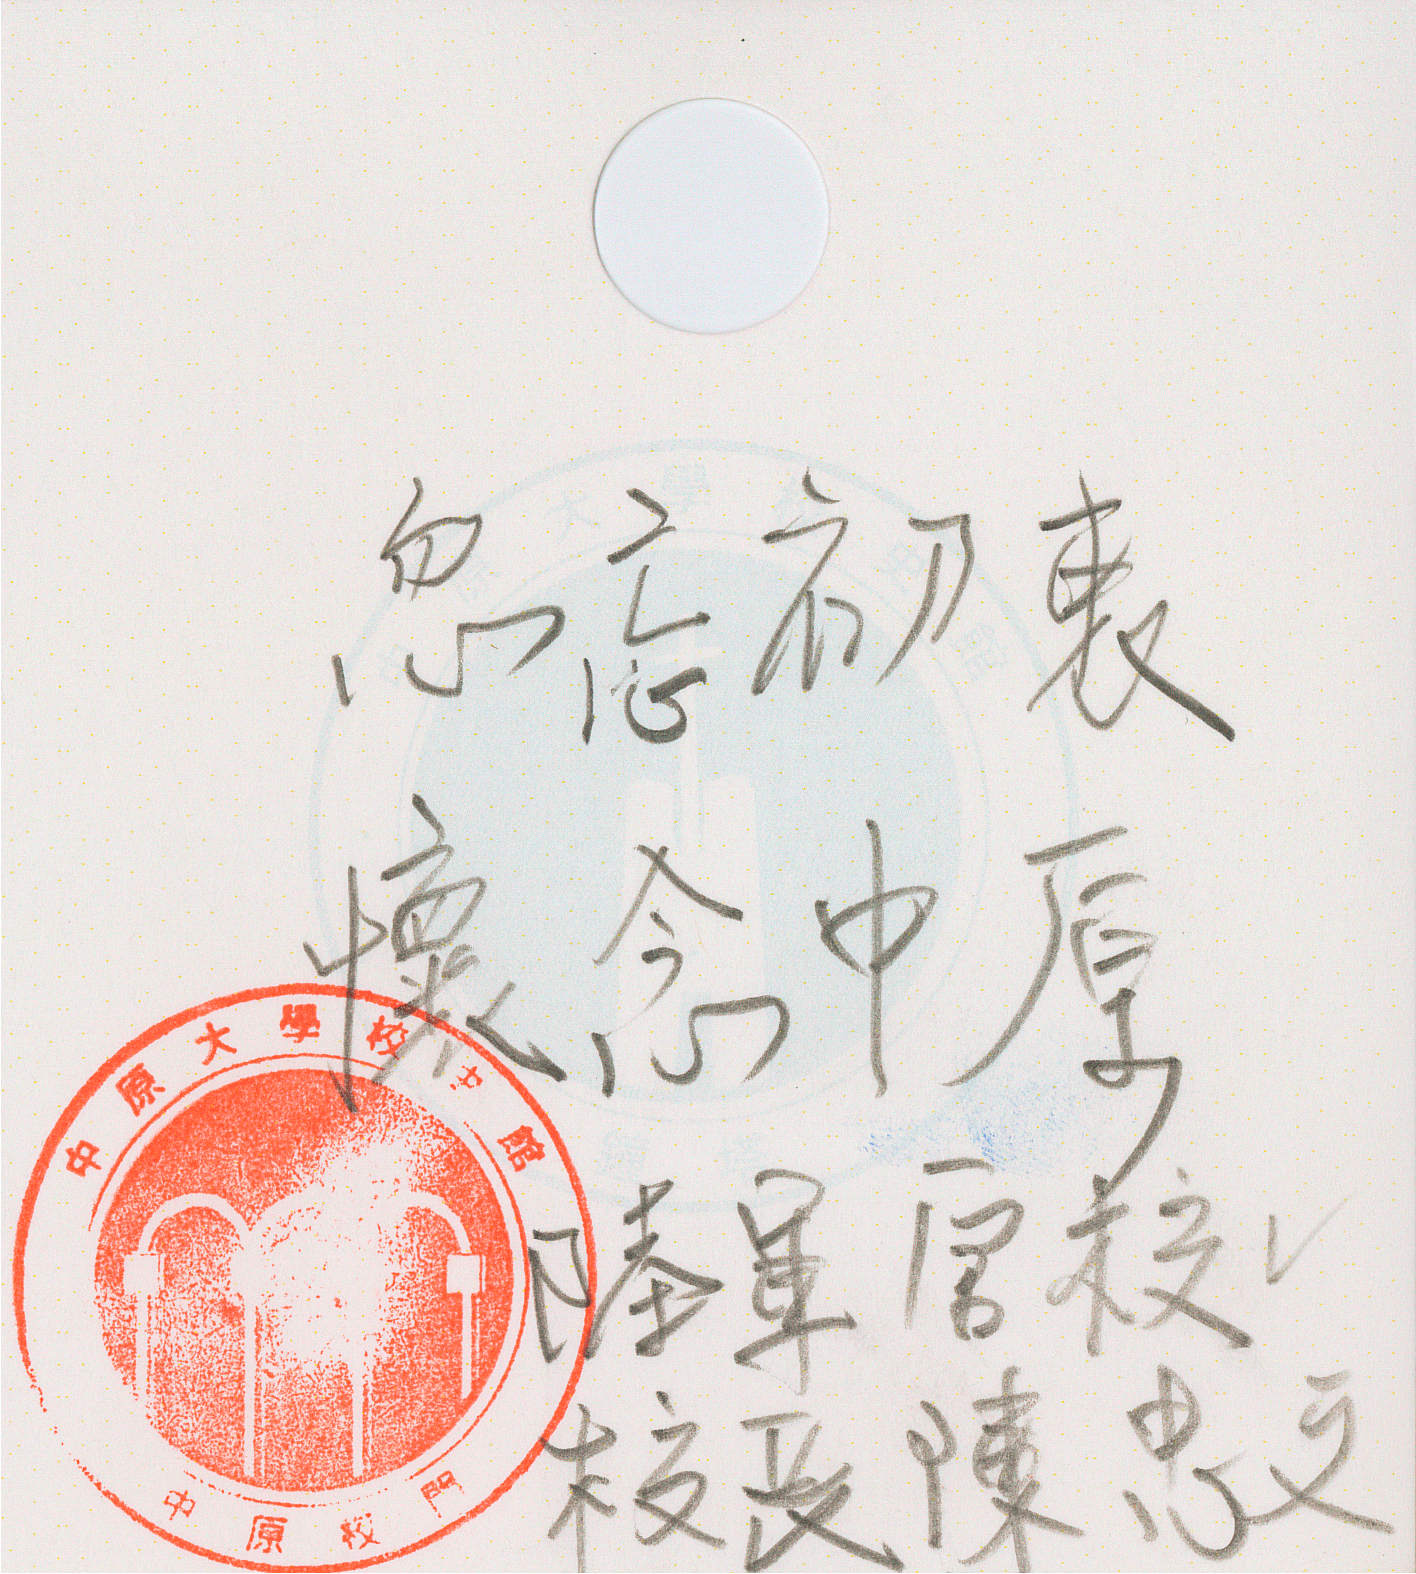 忽忘初衷
懷念中原
陸軍官校
校長陳忠文
中原大學校史館
中原校門